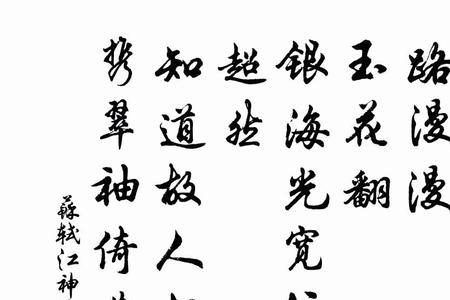 路漫漫
玉花翻
银海光宽
超然
知道故人
携翠袖倚
苏轼江神